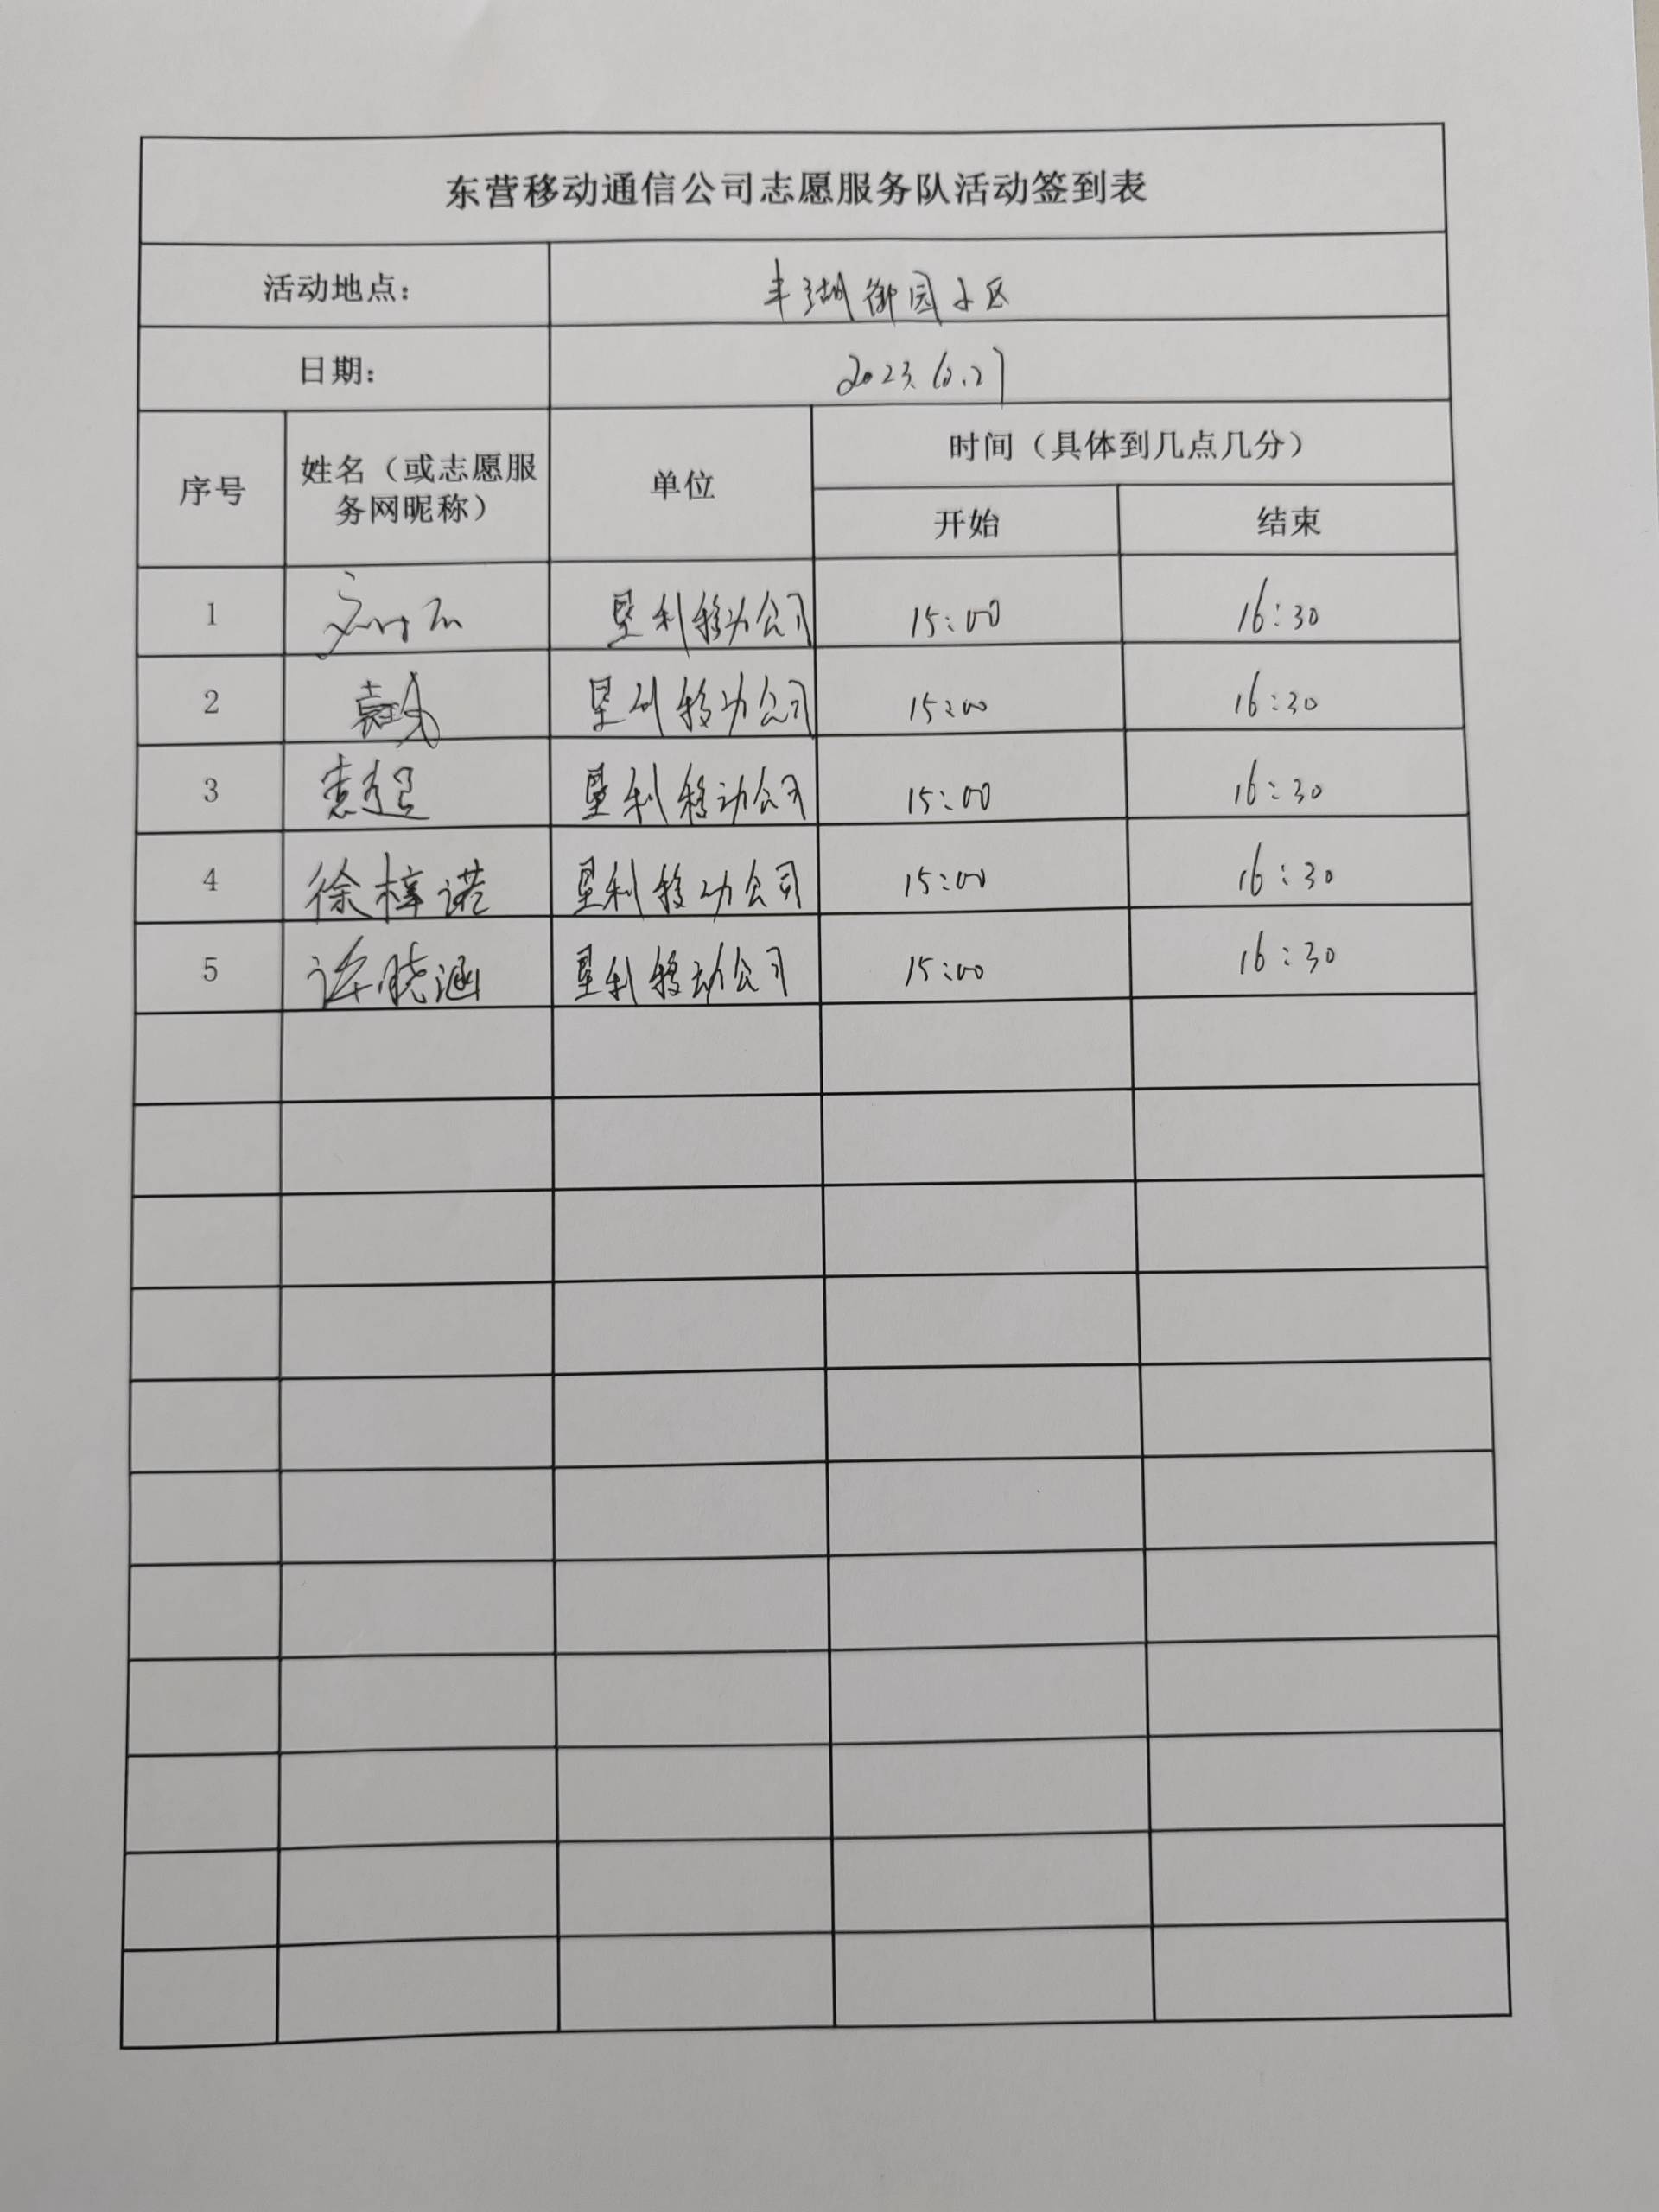 东营移动通信公司志愿服务队活动签到表
活动地点： 丰湖御园小区
日期： 2023.6.27
序号 姓名（或志愿服务网昵称） 单位 时间（具体到几点几分）
开始 结束
1 垦利移动公司 15:00 16:30
2 垦利移动公司 15:00 16:30
3 垦利移动公司 15:00 16:30
4 徐梓诺 垦利移动公司 15:00 16:30
5 许晓涵 垦利移动公司 15:00 16:30